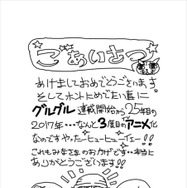 ごあいさつ
あけましておめでとうございます
そしてホントにめでたい事に
グルグル連載開始から25年目の
2017年・・・なんと3度目のアニメ化
なのですやったーヒューヒューイェー!!
これもみなさまのおかげです…本当に
ありがとうございます!!